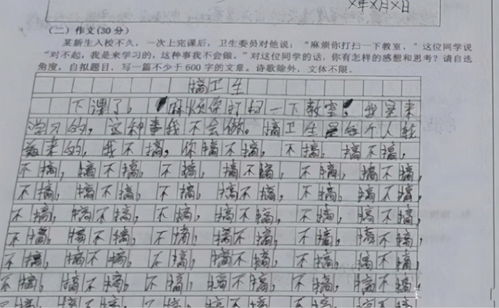 X年X月X日
(二)作文(30分)
某新生入校不久,一次上完课后,卫生委员对他说:“麻烦你打扫一下教室,”这位同学说
“对不起,我是来学习的,这种事我不会做。”对这位同学的话,你有怎样的感想和思考?请自选
角度,自拟题目,写一篇不少于600字的文章。诗歌除外,文体不限。
搞卫生
下课了,麻烦你打扫一下教室,我是来
学习的,这种事我不会做。搞卫生是每个人
来的,我不搞,你搞不搞,不搞,搞不搞,
不搞,搞不搞,不搞,搞不搞,不搞,搞不搞,
不搞,搞不搞,不搞,搞不搞,不搞,搞不搞,
不搞,搞不搞,不搞,搞不搞,不搞,搞不搞,
不搞,搞不搞,不搞,搞不搞,不搞,搞不搞,
不搞,搞不搞,不搞,搞不搞,不搞,搞不搞,
不搞,搞不搞,不搞,搞不搞,不搞,搞不搞,